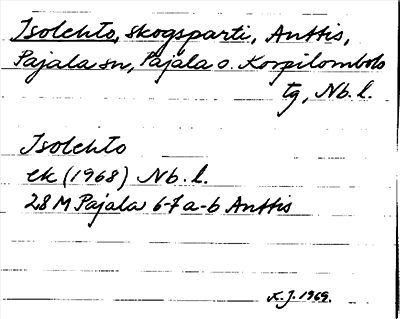 Isolehto, skogsparti, Anttis,
Pajala sn, Pajala o. Korpilombolo
tg, Nb. l.
Isolehto
ek (1968) Nb. l.
28 M Pajala 6-7 a-b Anttis
K. J. 1969.